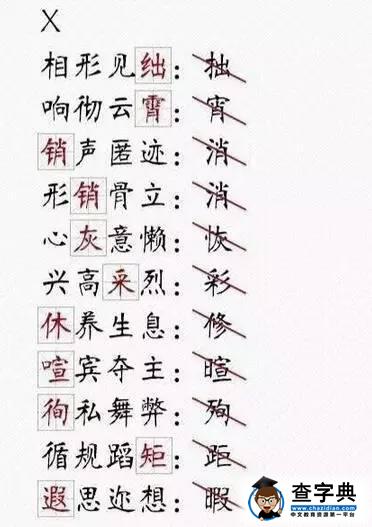 X
相形见绌：拙
响彻云霄：宵
销声匿迹：消
形销骨立：消
心灰意懒：恢
兴高采烈：彩
休养生息：修
喧宾夺主：暄
徇私舞弊：殉
循规蹈矩：距
遐思迩想：暇
查字典
www.chazidian.com
中文教育资源第一平台